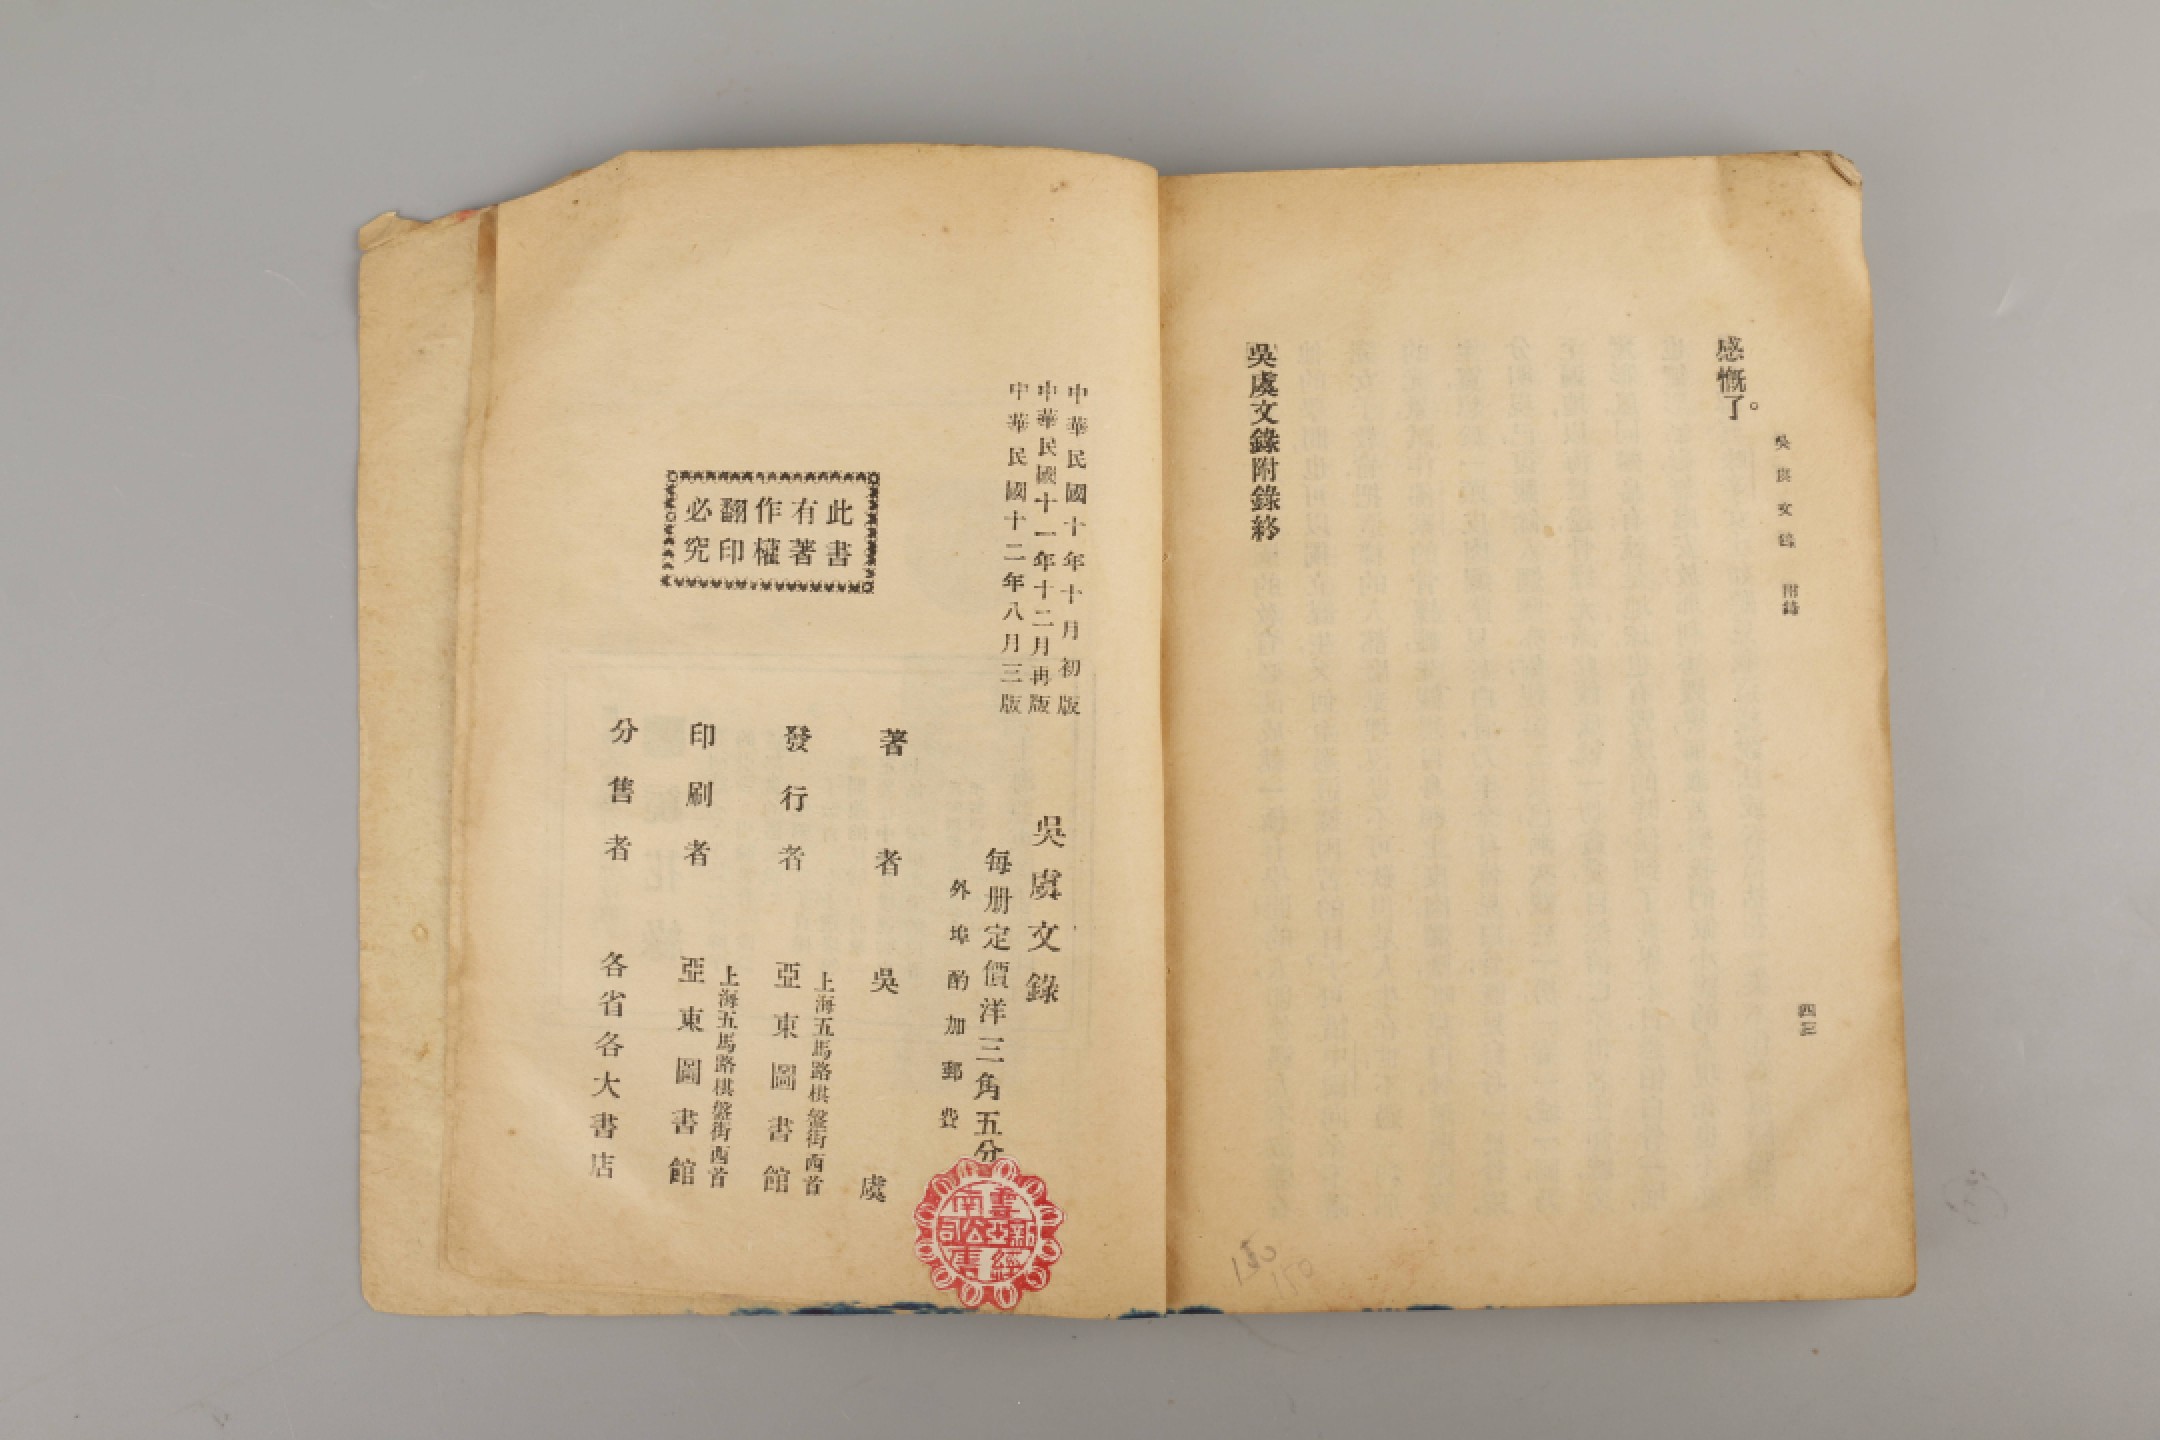 感慨了。
吳虞文錄 附錄
四三
吳虞文錄附錄終
中華民國十年十月初版
中華民國十一年十二月再版
中華民國十二年八月三版
此書
有著
作權
翻印
必究
吳虞文錄
每册定價洋三角五分
外埠酌加郵費
著者 吳虞
發行者 上海五馬路棋盤街西首
亞東圖書館
印刷者 上海五馬路棋盤街西首
亞東圖書館
分售者 各省各大書店